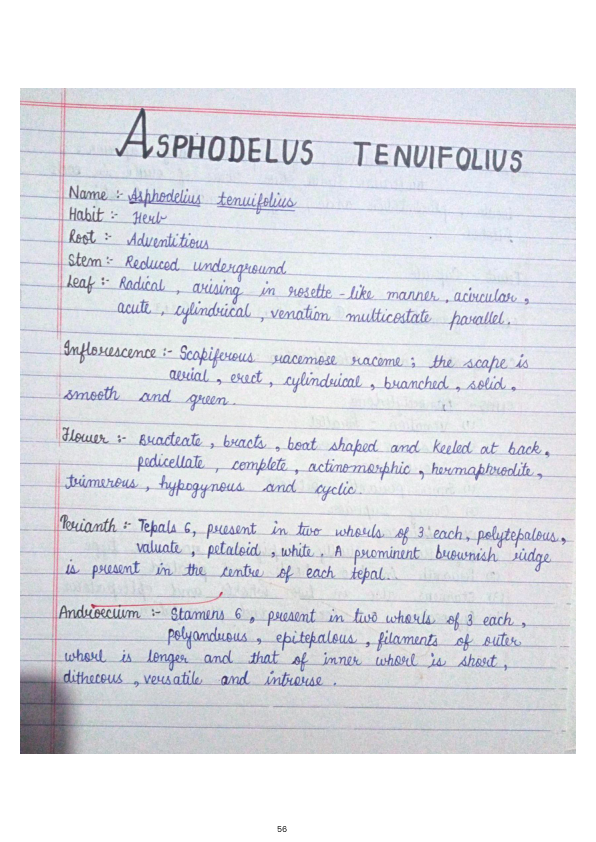 ASPHODELUS TENUIFOLIUS
Name :- Asphodelius tenuifolius
Habit :- Herb
Root :- Adventitious
Stem :- Reduced underground
Leaf :- Radical, arising in rosette-like manner, acircular,
acute, cylindrical, venation multicostate parallel.
Inflorescence :- Scapiferous racemose raceme; the scape is
aerial, erect, cylindrical, branched, solid,
smooth and green.
Flower :- Bracteate, bracts, boat shaped and keeled at back,
pedicellate, complete, actinomorphic, hermaphrodite,
trimerous, hypogynous and cyclic.
Perianth :- Tepals 6, present in two whorls of 3 each, polytepalous,
valuate, petaloid, white. A prominent brownish ridge
is present in the centre of each tepal.
Androecium :- Stamens 6, present in two whorls of 3 each,
polyandrous, epitepalous, filaments of outer
whorl is longer and that of inner whorl is short,
dithecous, versatile and introrse.
56